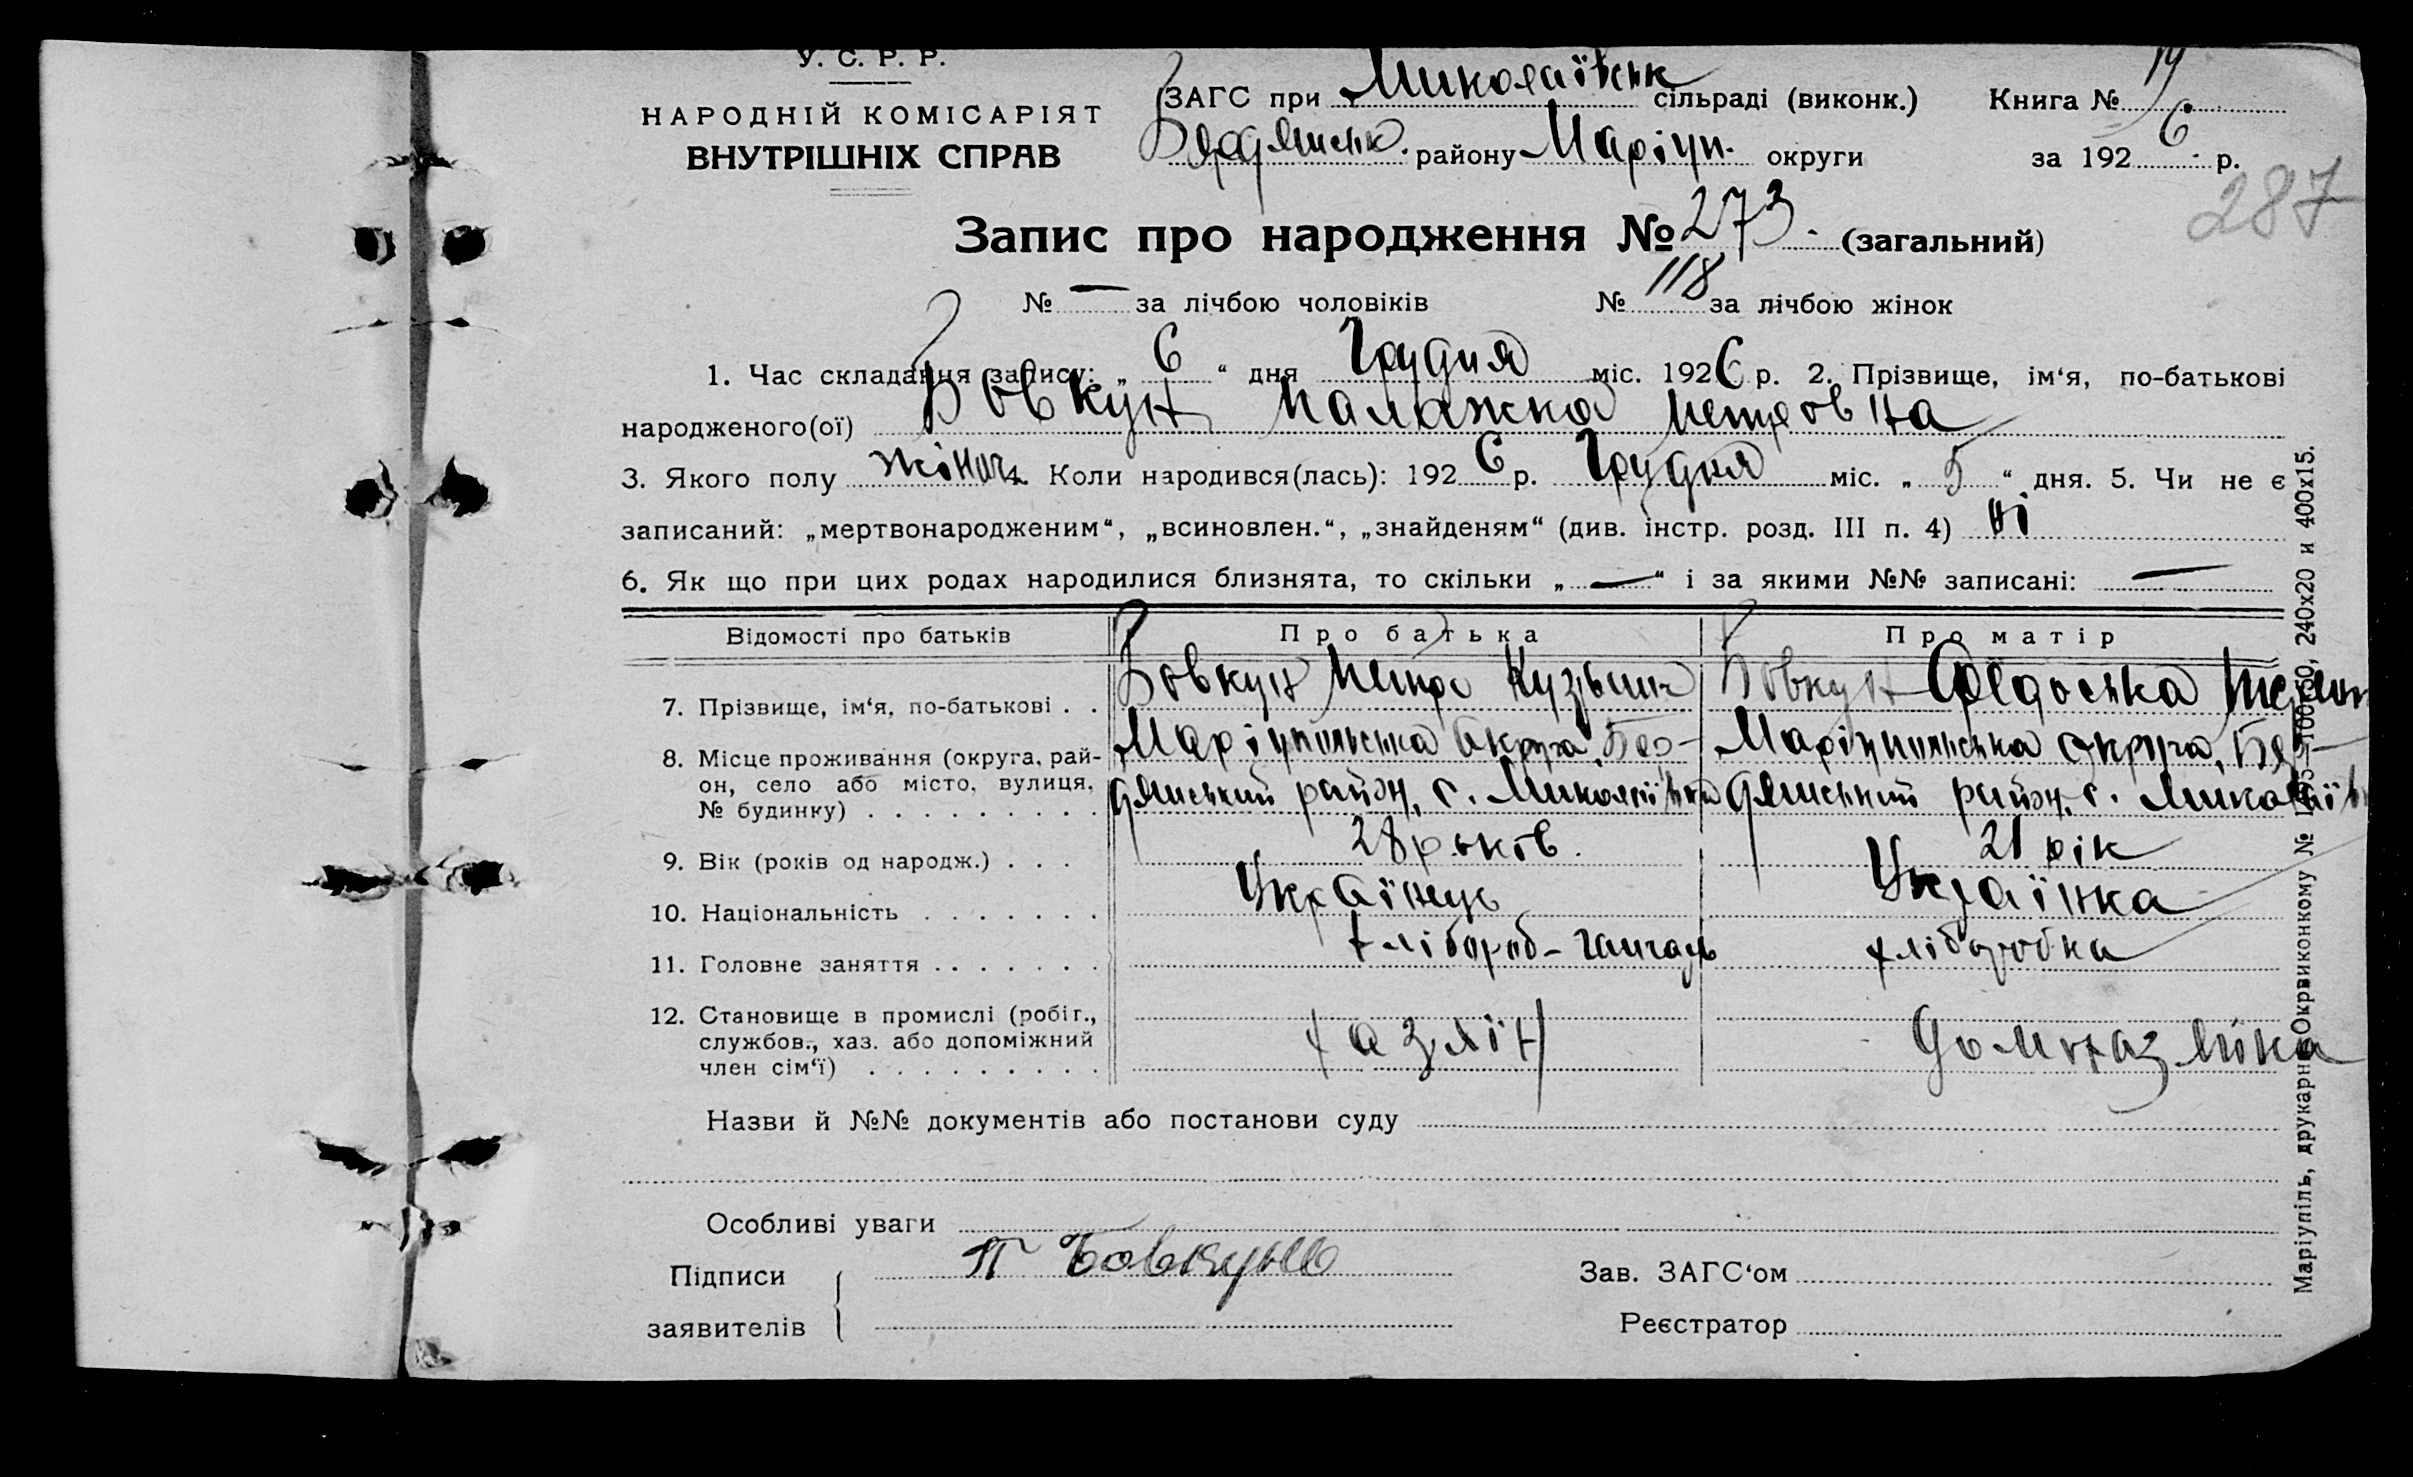 У. С. Р. Р.
НАРОДНІЙ КОМІСАРІЯТ
ВНУТРІШНІХ СПРАВ
ЗАГС при Миколаївськ сільраді (виконк.) Книга № 14
Бердянськ. району Маріуп. округи за 1926 р.
287
Запис про народження № 273. (загальний)
№ — за лічбою чоловіків № 118 за лічбою жінок
1. Час складання запису: „ 6 “ дня Грудня міс. 1926 р. 2. Прізвище, ім‘я, по-батькові
народженого(ої) Бовкун Палажка Петровна
3. Якого полу жіноч. 4. Коли народився(лась): 1926 р. Грудня міс. „ 5 “ дня. 5. Чи не є
записаний: „мертвонародженим“, „всиновлен.“, „знайденям“ (див. інстр. розд. III п. 4) ні
6. Як що при цих родах народилися близнята, то скільки „ — “ і за якими №№ записані: —
Відомості про батьків Про батька Про матір
7. Прізвище, ім‘я, по-батькові . . Бовкун Петро Кузьмич Бовкун Федоська
8. Місце проживання (округа, рай- Маріупольська округа, Бер- Маріупольська округа, Бер-
он, село або місто, вулиця, дянський район, с. Миколаївка дянський район, с. Миколаївк
№ будинку) . . . . . . . . .
9. Вік (років од народж.) . . . 28 років. 21 рік
10. Національність . . . . . . . Українець Українка
11. Головне заняття . . . . . . . хлібороб- хліборобка
12. Становище в промислі (робіг.,
службов., хаз. або допоміжний хазяїн домохазяйка
член сім‘ї) . . . . . . . . .
Назви й №№ документів або постанови суду
Особливі уваги
Підписи П Бовкунъ Зав. ЗАГС‘ом
заявителів Реєстратор
Маріупіль, друкарня Окрвиконкому №
240х20 и 400х15.